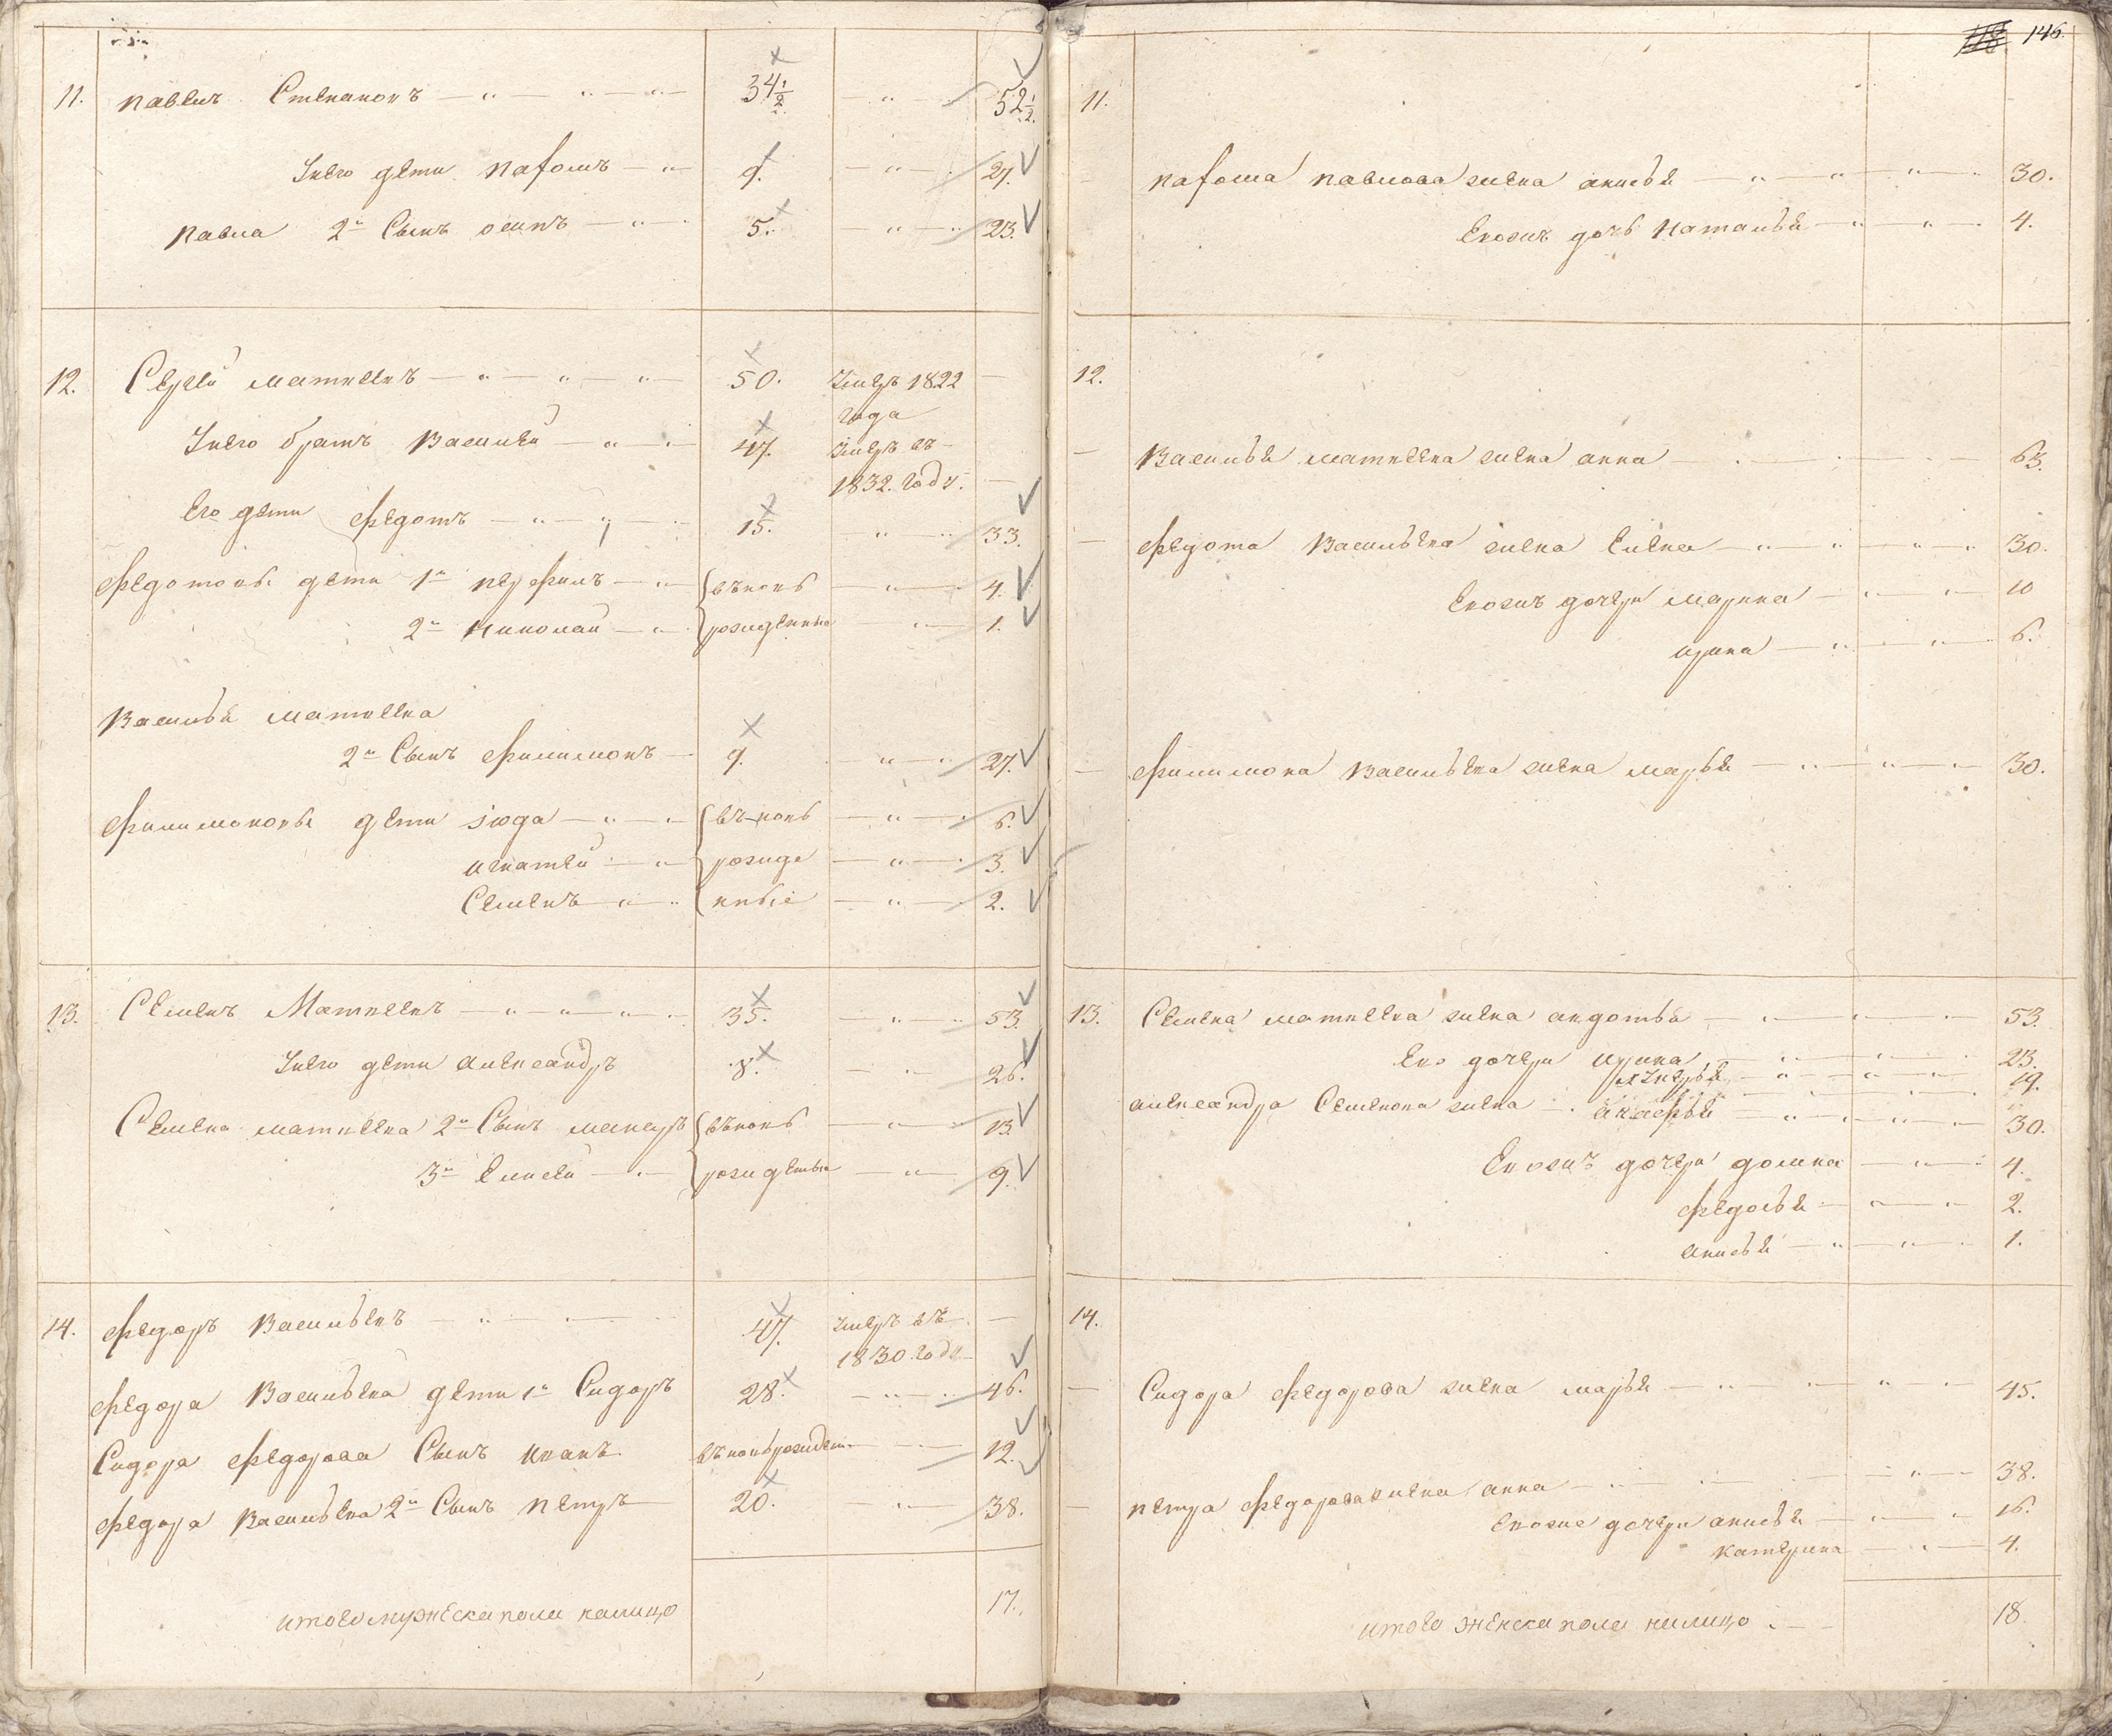 11. павелъ Степановъ — " — " — " — 34 1/2 " — 52 1/2.
Уевго дети парфенъ — " 9. — " — 27.
павла 2й Сынъ осипъ — " — 5. — " — 23.
12. Сергей матвеевъ — " — " — " — 50. умеръ 1822 —
года
Уевго братъ василей — " — 47. умеръ въ —
1832. году. —
Его дети федотъ — " — " — 15. — " — 33.
федотовы дети 1й перфилъ — " вновь — " — 4.
2й николай — " рожденныя — " — 1.
василья матвеева
2й Сынъ филимонъ — 9. — " — 27.
филимоновы дети июда — " — вновь — " — 6.
игнатей — " рожде — " — 3.
Семенъ — " ныые — " — 2.
13. Семенъ Матвеевъ — " — " — " — 35. — " — 53.
Уевго дети александръ 8. — " — 26.
Семена матвеева 2й Сынъ макаръ вновь — " — 13.
3й Елисей — " рожденыя — " — 9.
14. федоръ васильевъ — " — 47. умеръ въ —
1830. году —
федора васильева дети 1й Сидоръ 28. — " — 46.
Сидора федорова Сынъ иванъ вновь рожден — 12.
федора васильева 2й Сынъ петръ — 20. — " — 38.
итого мужеска пола налицо 17.
146.
11.
парфена павлова жена анисья — " — " — " — 30.
Евоихъ дочь наталья — " — " — 4.
12.
— василья матвеева жена анна — 63.
— федота васильева жена Елена — " — " — " — " 30.
Евоихъ дочери марина — " — " — 10
ирина — " — " — 6.
— филимона васильева жена марья — " — " — 30.
13. Семена матвеева жена авдотья — " — " — 53.
Ево дочери ирина — " — " — 23.
лукерья — " — " — 19.
александра Семенова жена — акафья — " — " — 30.
Евоихъ дочери домна — " — 4.
федосья — " — 2.
анисья — " — " — 1.
14.
— Сидора федорова жена марья — " — " — 45.
— петра федорова жена анна — " — " — 38.
Евоихъ дочери анисья — " — " 16.
катерина — " — 4.
итого женска пола налицо — 18